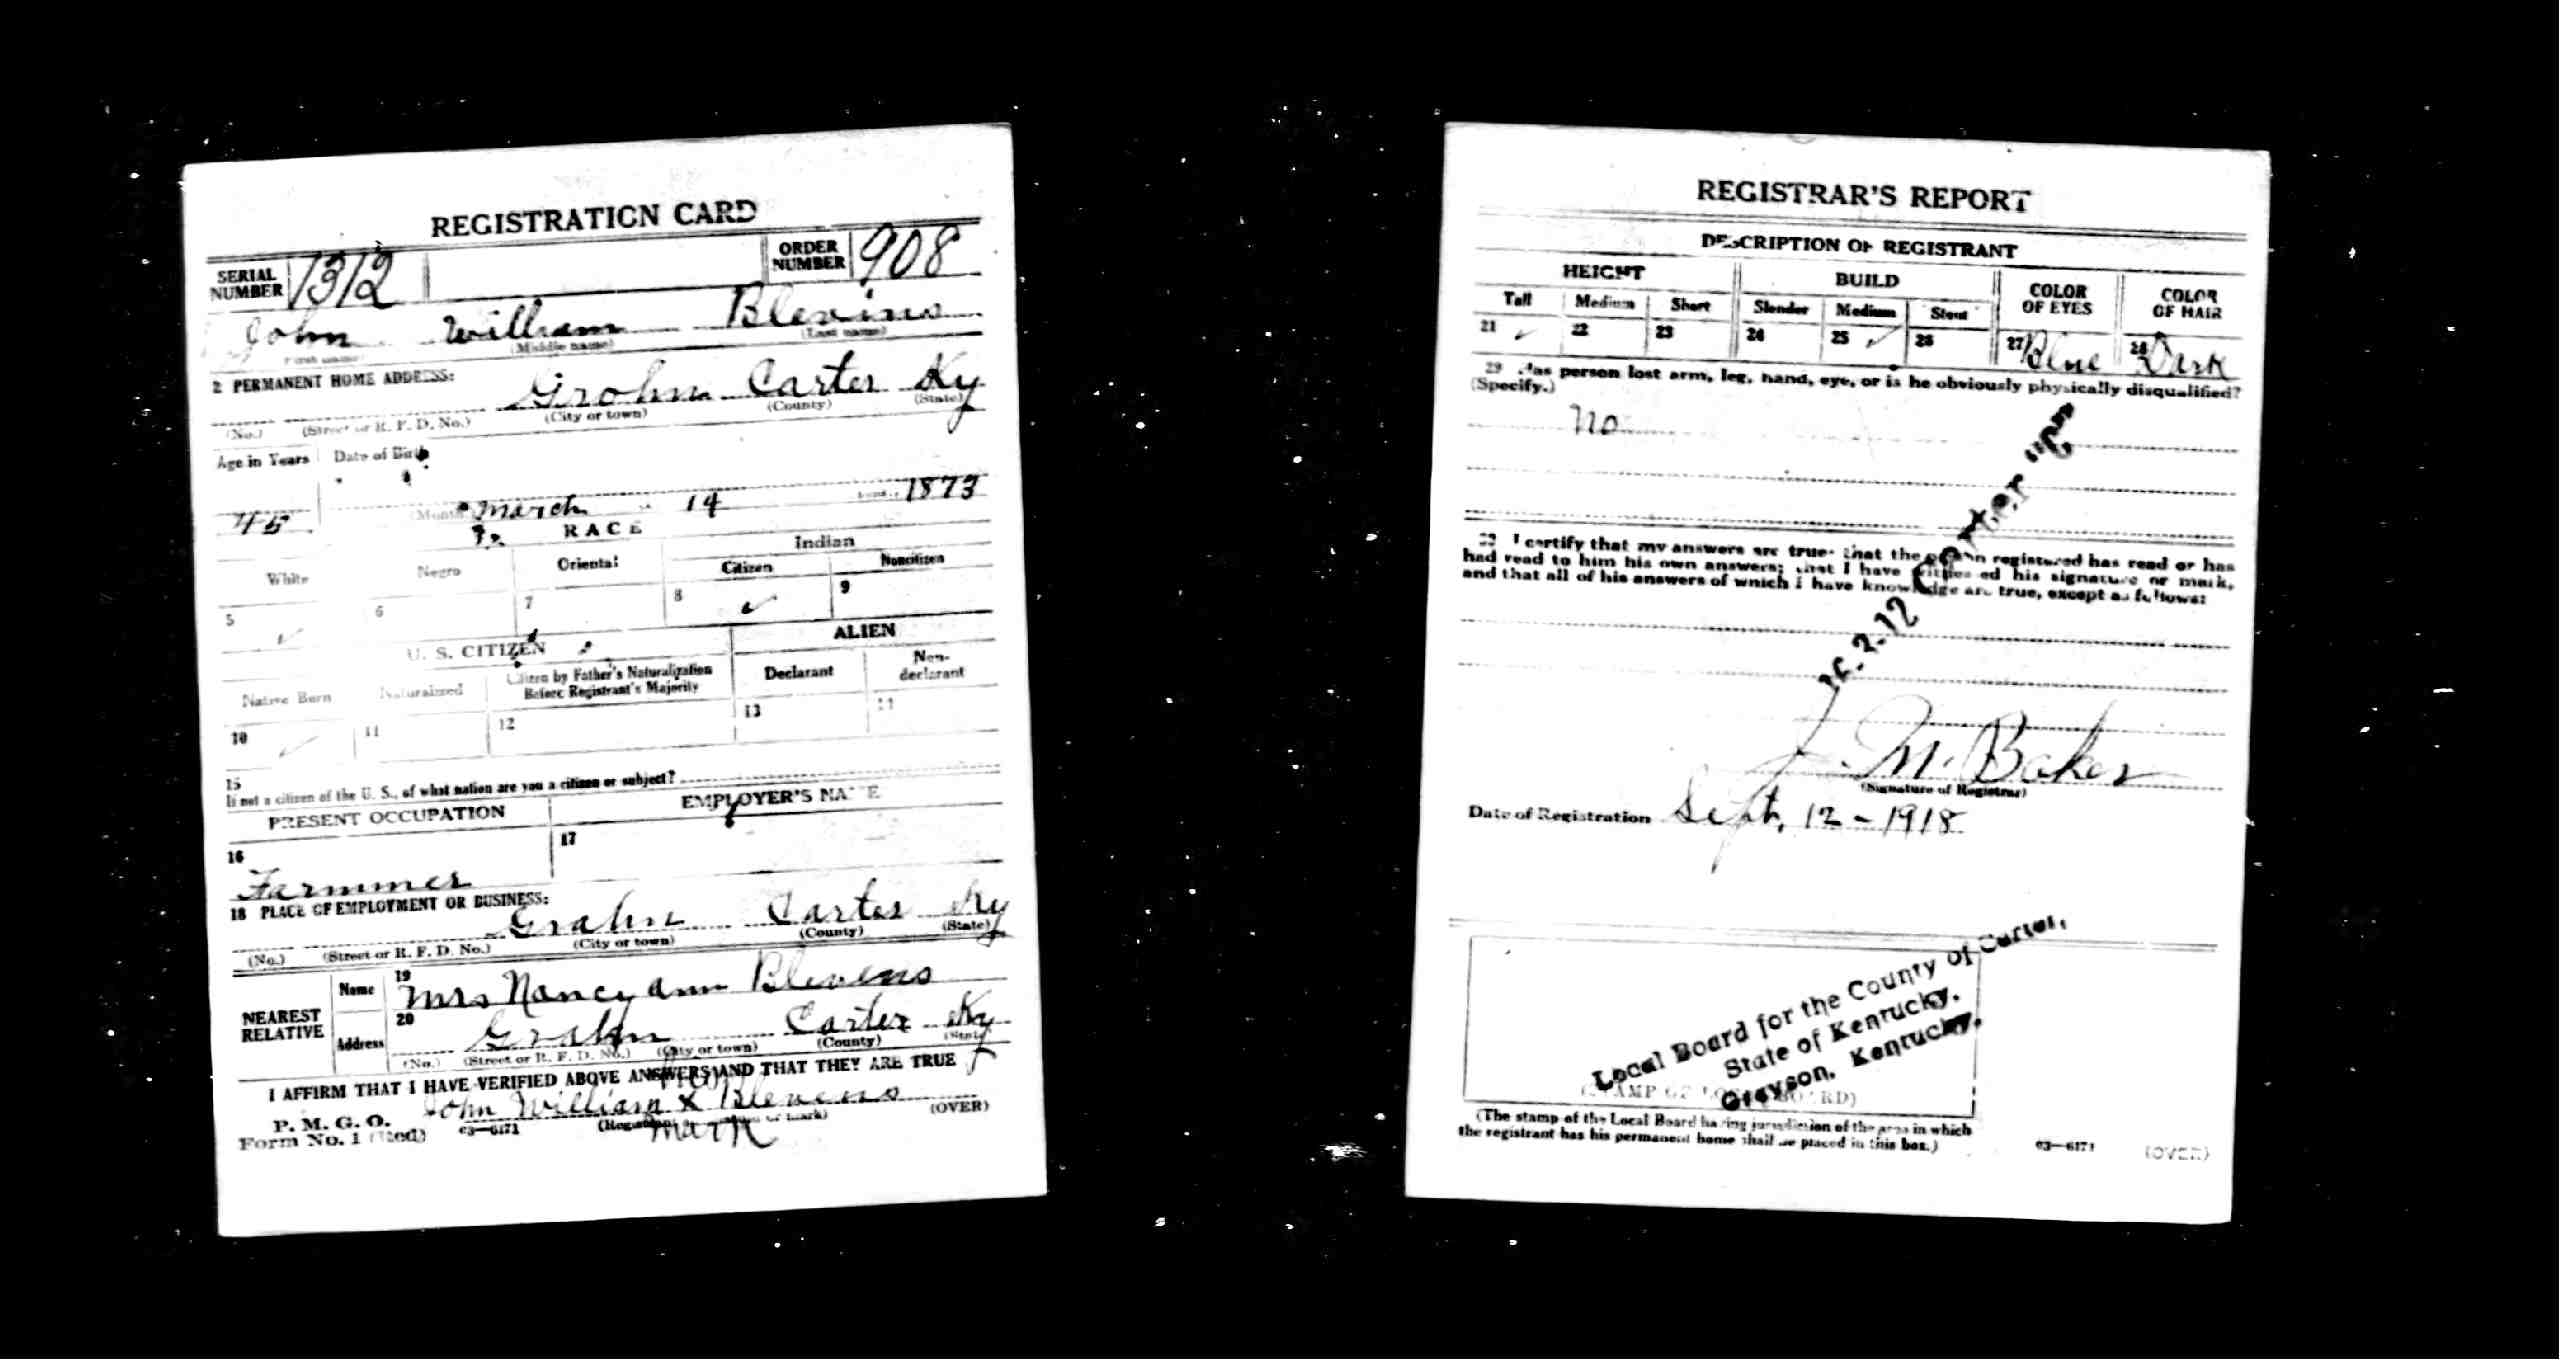 REGISTRATION CARD
SERIAL NUMBER 1312 ORDER NUMBER 908
John William Blevins
(First name) (Middle name) (Last name)
2 PERMANENT HOME ADDRESS:
Grohn Carter Ky
(No.) (Street or R. F. D. No.) (City or town) (County) (State)
Age in Years Date of Birth
45 (Month) March 14 1873
RACE
White Negro Oriental Indian
Citizen Noncitizen
5 ✓ 6 7 8 ✓ 9
U. S. CITIZEN ALIEN
Native Born Naturalized Citizen by Father's Naturalization Before Registrant's Majority Declarant Non-declarant
10 ✓ 11 12 13
15
If not a citizen of the U. S., of what nation are you a citizen or subject?
PRESENT OCCUPATION EMPLOYER'S NAME
16 17
Farmmer
18 PLACE OF EMPLOYMENT OR BUSINESS:
Grahn Carter Ky
(No.) (Street or R. F. D. No.) (City or town) (County) (State)
NEAREST RELATIVE Name 19 Mrs Nancy ann Blevens
Address 20 Grahn Carter Ky
(No.) (Street or R. F. D. No.) (City or town) (County) (State)
I AFFIRM THAT I HAVE VERIFIED ABOVE ANSWERS AND THAT THEY ARE TRUE
his
P. M. G. O. John William X Blevens
Form No. 1 (Red) 03—6171 mark (OVER)
REGISTRAR'S REPORT
DESCRIPTION OF REGISTRANT
HEIGHT BUILD COLOR OF EYES COLOR OF HAIR
Tall Medium Short Slender Medium Stout
21 ✓ 22 23 24 25 ✓ 26 27 Blue 28 Dark
29 Has person lost arm, leg, hand, eye, or is he obviously physically disqualified?
(Specify.)
no
30 I certify that my answers are true; that the person registered has read or has
had read to him his own answers; that I have witnessed his signature or mark,
and that all of his answers of which I have knowledge are true, except as follows:
16-2-12 Carter "C"
J. M. Baker
(Signature of Registrar)
Date of Registration Sept. 12 - 1918
Local Board for the County of Carter,
State of Kentucky.
Grayson, Kentucky.
(STAMP OF LOCAL BOARD)
(The stamp of the Local Board having jurisdiction of the area in which
the registrant has his permanent home shall be placed in this box.)
03—6171 (OVER)